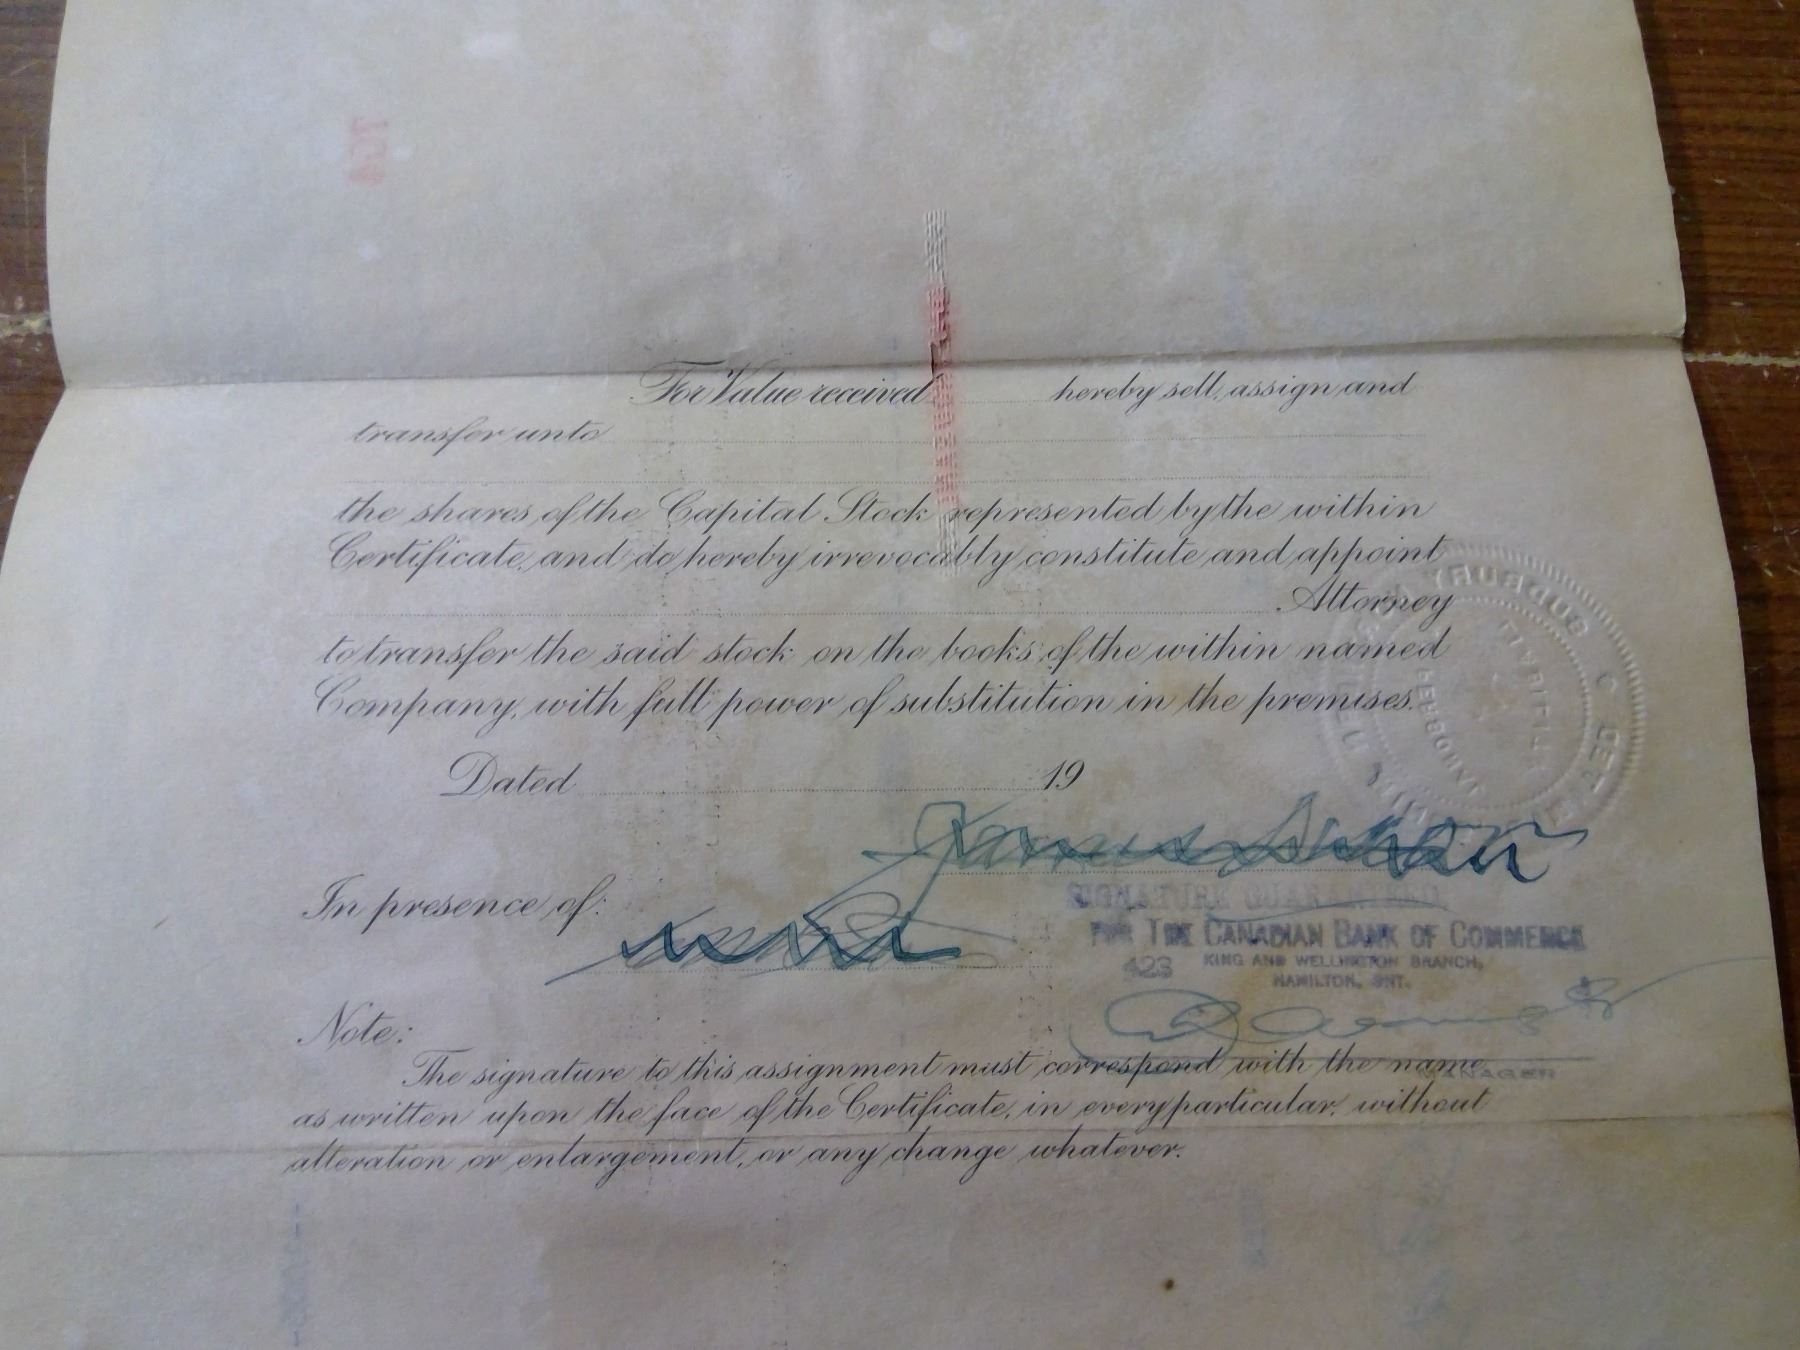 For Value received hereby sell, assign and
transfer unto
the shares of the Capital Stock represented by the within
Certificate, and do hereby irrevocably constitute and appoint
Attorney
to transfer the said stock on the books of the within named
Company, with full power of substitution in the premises.
Dated 19
In presence of:
SIGNATURE GUARANTEED
FOR THE CANADIAN BANK OF COMMERCE
423 KING AND WELLINGTON BRANCH,
HAMILTON, ONT.
MANAGER
Note:
The signature to this assignment must correspond with the name
as written upon the face of the Certificate, in every particular, without
alteration or enlargement, or any change whatever.